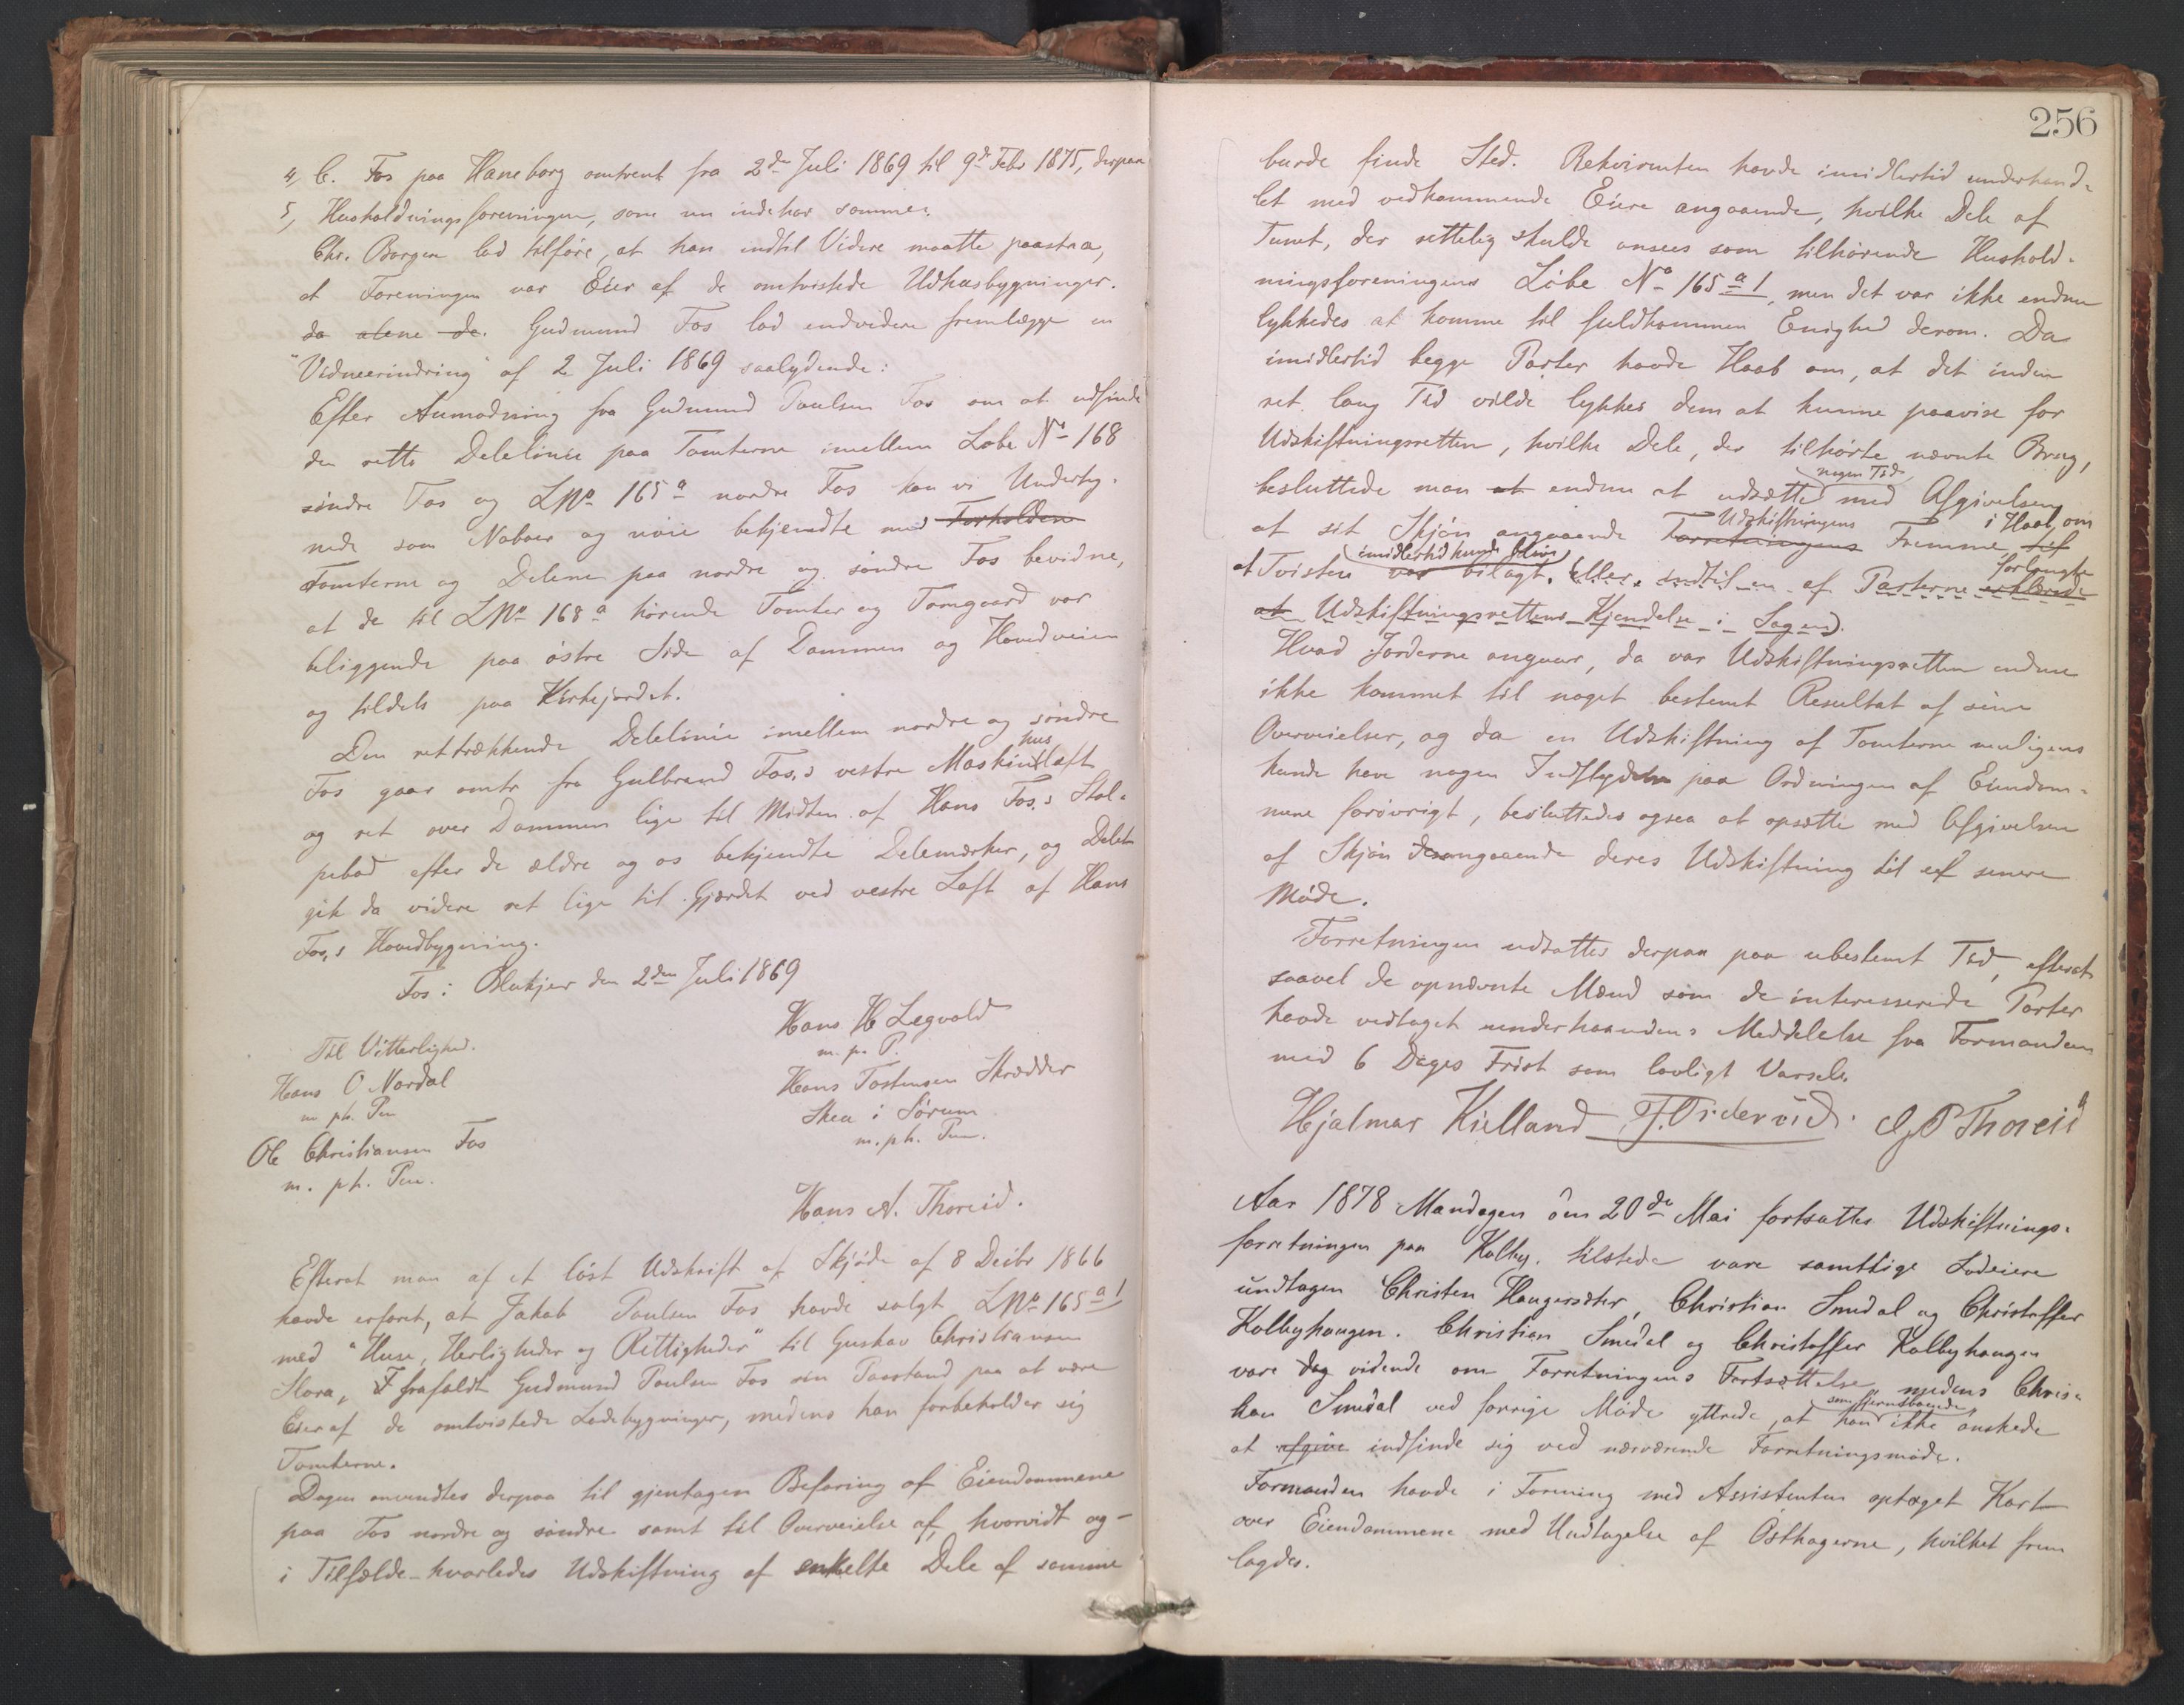 4, C. Fos paa Haneborg omtrent fra 2den Juli 1869 til 9de Febr 1875, derpaa
5, Husholdningsforeningen, som nu indehar samme.
Chr. Borgen lod tilføre, at han indtil Videre maatte paastaa,
at Foreningen var Eier af de omtvistede Udhusbygninger.
da alene de. Gudmund Fos lod endvidere fremlægge en
"Vidneerindring" af 2 Juli 1869 saalydende:
Efter Anmodning fra Gudmund Paulsen Fos om at udfinde
den rette Delelinie paa Tomterne imellem Løbe No 168
søndre Fos og LNo 165a nordre Fos kan vi Underteg-
nede som Naboer og nøie bekjendte med Forholden
Tomterne og Delene paa nordre og søndre Fos bevidne,
at de til LNo 168a hørende Tomter og Tomgaard var
beliggende paa østre Side af Dammen og Hovedveien
og tildels paa Kirkejordet.
Den rettrækkende Delelinie imellem nordre og søndre
hus
Fos gaar omtr fra Gulbrand Fos,s vestre Maskinlaft
og ret over Dammen lige til Midten af Hans Fos,s Stol-
pebod efter de ældre og os bekjendte Delemærker, og Delet
gik da videre ret lige til Gjærdet ved vestre Laft af Hans
Fos,s Hovedbygning.
Fos i Blakjer den 2den Juli 1869
Hans H Legvold
m. p. P.
Til Vitterlighed.
Hans O Nordal
m ph. Pen
Hans Tostensen Skrædder
Skea i Sørum
m. ph. Pen.
Ole Christiansen Fos
m. ph. Pen.
Hans A. Thoreid.
Efterat man af et løst Udskrift af Skjøde af 8 Decbr 1866
havde erfaret, at Jakob Paulsen Fos havde solgt LNo 165a1
med "Huse, Herligheder og Rettigheder" til Gustav Christiansen
Slora, F frafaldt Gudmund Paulsen Fos sin Paastand paa at være
Eier af de omtvistede Ladebygninger, medens han forbeholder sig
Tomterne.
Dagen anvendtes derpaa til gjentagen Befaring af Eiendommene
paa Fos nordre og søndre samt til Overveielse af, hvorvidt og -
i Tilfælde - hvorledes Udskiftning af enkelte Dele af samme
256
burde finde Sted. Rekvirenten havde imidlertid underhand-
let med vedkommende Eiere angaaende, hvilke Dele af
Tunet, der rettelig skulde ansees som tilhørende Hushold-
ningsforeningens Løbe No 165a1, men det var ikke endnu
lykkedes at komme til fuldkommen Enighed derom. Da
imidlertid begge Parter havde Haab om, at det inden
ret lang Tid vilde lykkes dem at kunne paavise for
Udskiftningsretten, hvilke Dele, der tilhørte nævnte Brug,
nogen Tid
besluttede man at endnu at udsætte med Afgivelsen
Udskiftningens i Haab om
af sit Skjøn angaaende Forretningens Fremme, til
imidlertid kunde blive
at Tvisten var bilagt, eller indtil en af Parterne erklærede
forlangte
at Udskiftningsrettens Kjendelse i Sagen.
Hvad Jorderne angaar, da var Udskiftningsretten endnu
ikke kommet til noget bestemt Resultat af sine
Overveielser, og da en Udskiftning af Tomterne muligens
kunde have nogen Indflydelse paa Ordningen af Eiendom-
mene forøvrigt, besluttedes ogsaa at opsætte med Afgivelsen
af Skjøn desangaaende deres Udskiftning til et senere
Møde.
Forretningen udsattes derpaa paa ubestemt Tid, efterat
saavel de opnævnte Mænd som de interesserede Parter
havde vedtaget underhaandens Meddelelse fra Formanden
med 6 Dages Frist som lovligt Varsel.
Hjalmar Kielland G P Thoreid
Aar 1878 Mandagen den 20de Mai fortsattes Udskiftnings-
forretningen paa Kolby. tilstede vare samtlige Lodeiere
undtagen Christen Haugersæter, Christian Smedal og Christoffer
Kolbyhaugen. Christian Smedal og Christoffer Kolbyhaugen
vare dog vidende om Forretningens Fortsættelse medens Chris-
som fjerntboende
tian Smedal ved forrige Møde yttrede, at han ikke ønskede
at afgive indfinde sig ved nærværende Forretningsmøde.
Formanden havde i Forening med Assistenten optaget Kart
over Eiendommene med Undtagelse af Østhagerne, hvilket frem
lagdes.